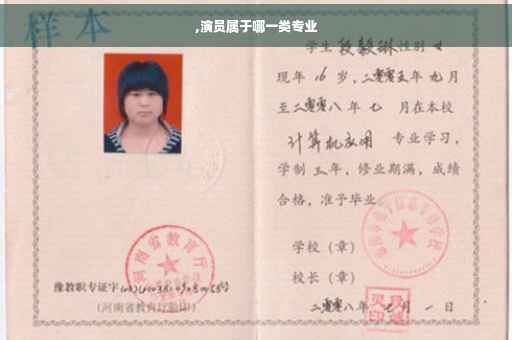 ,演员属于哪一类专业
样本
学生段毅琳性别女
现年16岁,二零零五年九月
至二零零八年七 月在本校
计算机应用 专业学习,
学制三年,修业期满,成绩
合格,准予毕业
学校(章)
校长(章)
二零零八年七月一日
河南省教育厅
豫教职专证字
(河南省教育厅验印)